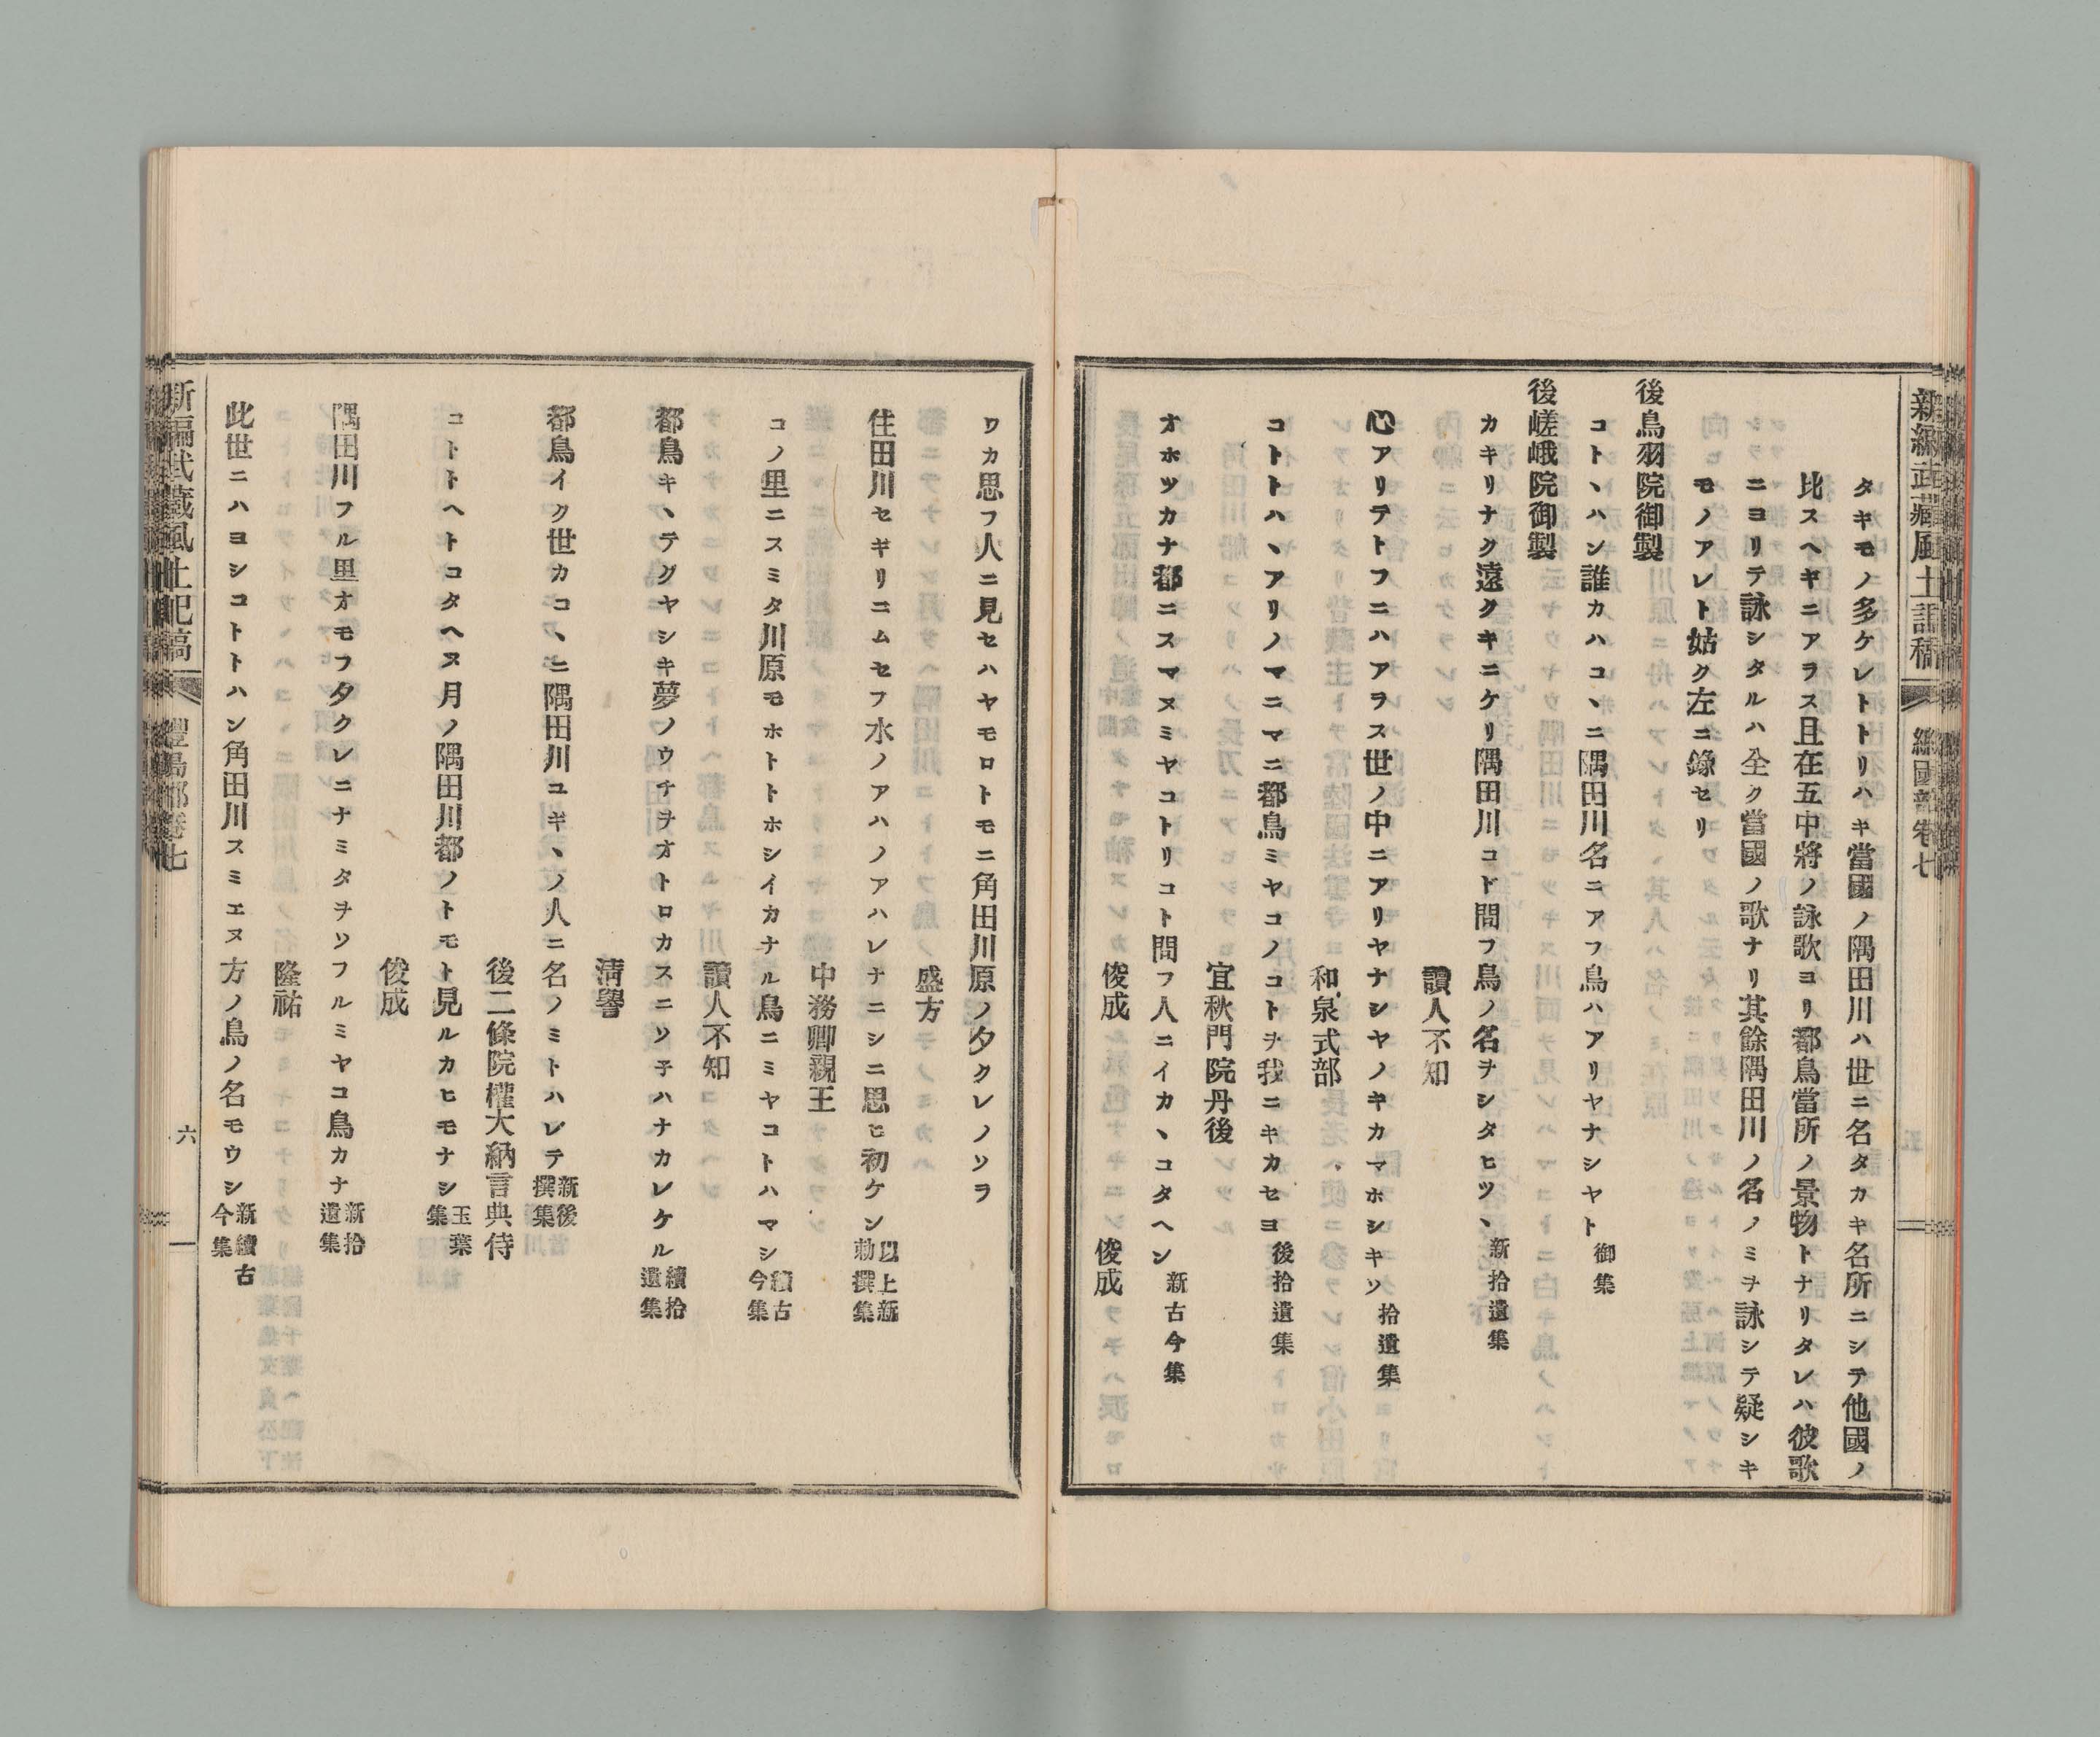 新編武藏風土記稿 總國部卷七
タキモノ多ケレトトリハキ當國ノ隅田川ハ世ニ名タカキ名所ニシテ他國ノ
比スヘキニアラス且在五中將ノ詠歌ヨリ都鳥當所ノ景物トナリタレハ彼歌
ニヨリテ詠シタルハ全ク當國ノ歌ナリ其餘隅田川ノ名ノミヲ詠シテ疑シキ
モノアレト姑ク左ニ錄セリ
後鳥羽院御製
コトヽハン誰カハコヽニ隅田川名ニアフ鳥ハアリヤナシヤト 御集
後嵯峨院御製
カキリナク遠クキニケリ隅田川コト問フ鳥ノ名ヲシタヒツヽ 新拾遺集
讀人不知
心アリテトフニハアラス世ノ中ニアリヤナシヤノキカマホシキソ 拾遺集
和泉式部
コトトハヽアリノマニマニ都鳥ミヤコノコトヲ我ニキカセヨ 後拾遺集
宜秋門院丹後
オホツカナ都ニスマヌミヤコトリコト問フ人ニイカヽコタヘン 新古今集
俊成 俊成
ワカ思フ人ニ見セハヤモロトモニ角田川原ノ夕クレノソラ
盛方
住田川セギリニムセフ水ノアハノアハレナニシニ思ヒ初ケン 以上新勅撰集
中務卿親王
コノ里ニスミタ川原モホトトホシイカナル鳥ニミヤコトハマシ 續古今集
讀人不知
都鳥キヽテグヤシキ夢ノウチヲオトロカスニソ子ハナカレケル 續拾遺集
淸譽
都鳥イク世カコヽニ隅田川ユギヽノ人ニ名ノミトハレテ 新後撰集
後二條院權大納言典侍
コトトヘトコタヘヌ月ノ隅田川都ノトモト見ルカヒモナシ 玉葉集
俊成
隅田川フル里オモフ夕クレニナミタヲソフルミヤコ鳥カナ 新拾遺集
隆祐
此世ニハヨシコトトハン角田川スミエヌ方ノ鳥ノ名モウシ 新續古今集
新編武藏風土記稿 豐島郡卷七
六